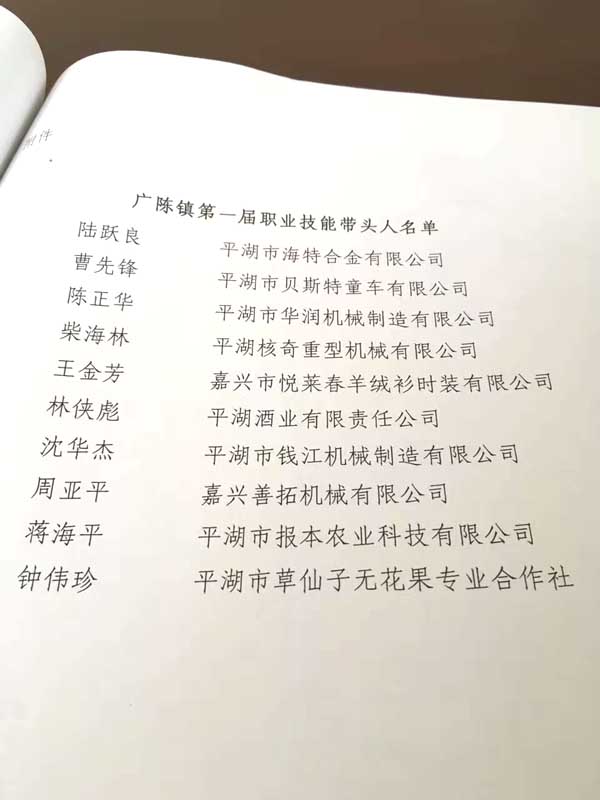 附件
广陈镇第一届职业技能带头人名单
陆跃良 平湖市海特合金有限公司
曹先锋 平湖市贝斯特童车有限公司
陈正华 平湖市华润机械制造有限公司
柴海林 平湖核奇重型机械有限公司
王金芳 嘉兴市悦莱春羊绒衫时装有限公司
林侠彪 平湖酒业有限责任公司
沈华杰 平湖市钱江机械制造有限公司
周亚平 嘉兴善拓机械有限公司
蒋海平 平湖市报本农业科技有限公司
钟伟珍 平湖市草仙子无花果专业合作社